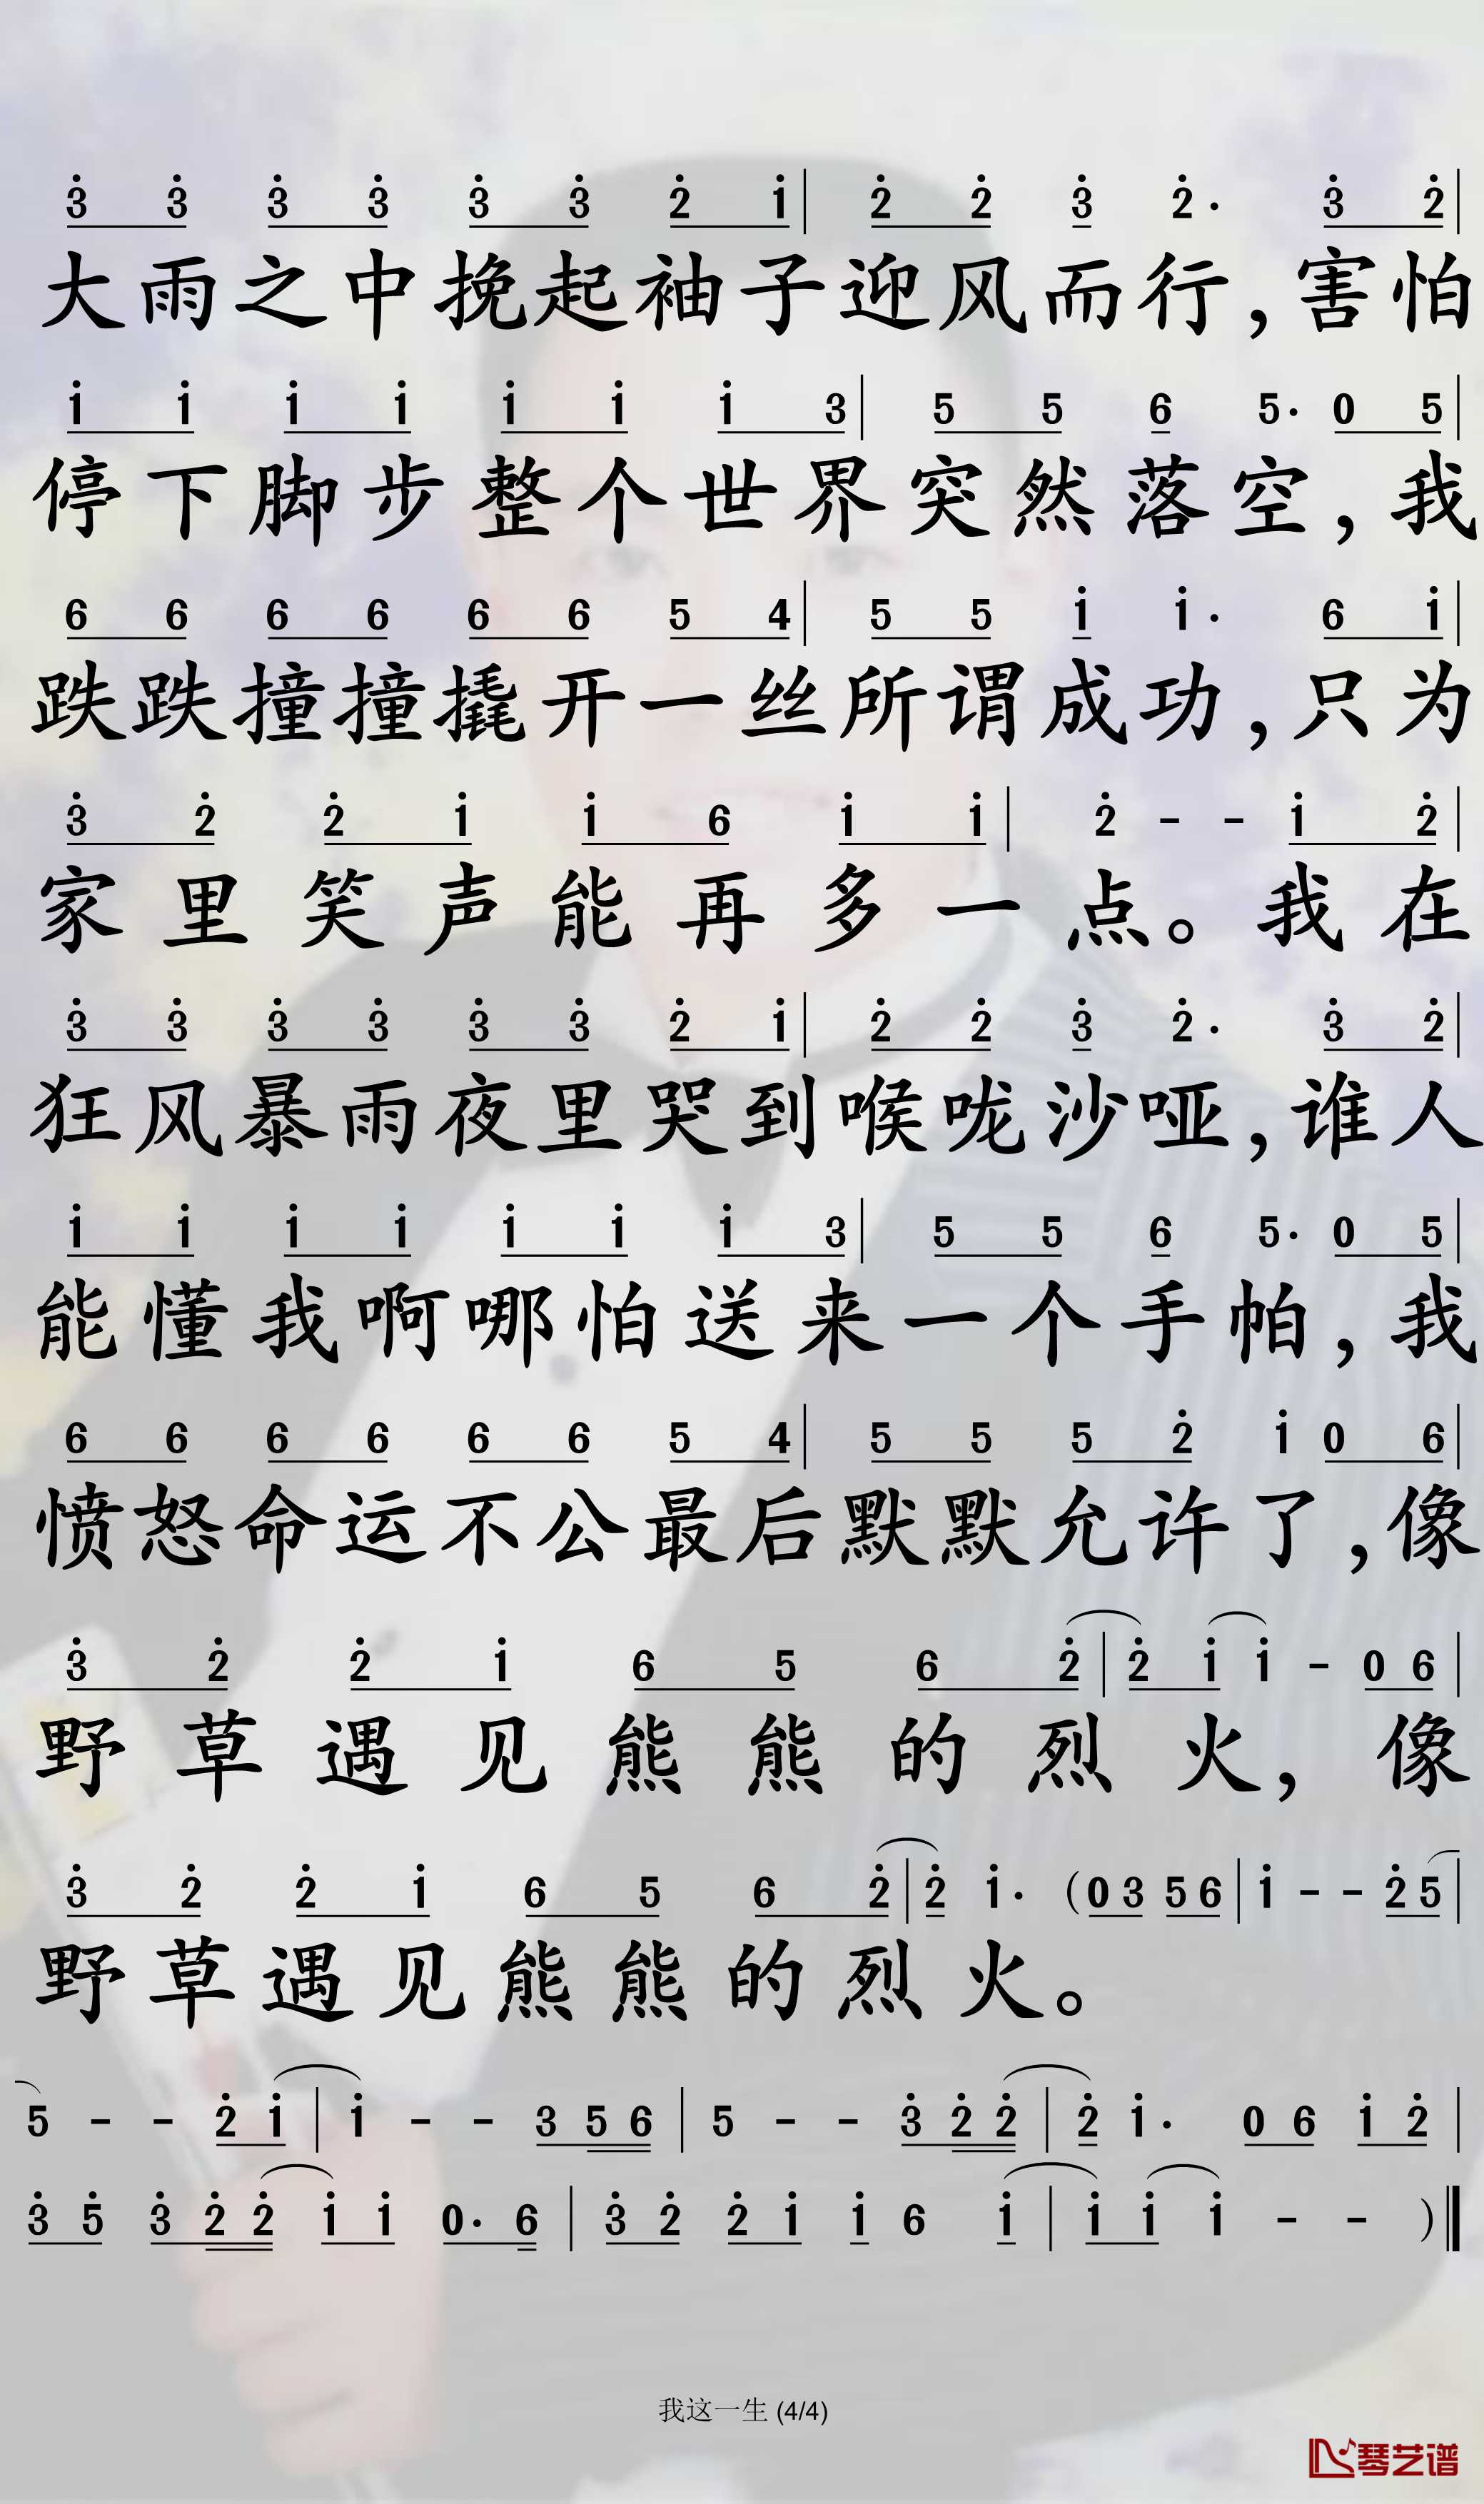 3̇ 3̇ 3̇ 3̇ 3̇ 3̇ 2̇ 1̇ | 2̇ 2̇ 3̇ 2̇· 3̇ 2̇ |
大雨之中挽起袖子迎风而行,害怕
1̇ 1̇ 1̇ 1̇ 1̇ 1̇ 1̇ 3 | 5 5 6 5· 0 5 |
停下脚步整个世界突然落空,我
6 6 6 6 6 6 5 4 | 5 5 1̇ 1̇· 6 1̇ |
跌跌撞撞撬开一丝所谓成功,只为
3̇ 2̇ 2̇ 1̇ 1̇ 6 1̇ 1̇ | 2̇ - - 1̇ 2̇ |
家里笑声能再多一点。我在
3̇ 3̇ 3̇ 3̇ 3̇ 3̇ 2̇ 1̇ | 2̇ 2̇ 3̇ 2̇· 3̇ 2̇ |
狂风暴雨夜里哭到喉咙沙哑,谁人
1̇ 1̇ 1̇ 1̇ 1̇ 1̇ 1̇ 3 | 5 5 6 5· 0 5 |
能懂我啊哪怕送来一个手帕,我
6 6 6 6 6 6 5 4 | 5 5 5 2̇ 1̇ 0 6 |
愤怒命运不公最后默默允许了,像
3̇ 2̇ 2̇ 1̇ 6 5 6 2̇ | 2̇ 1̇ 1̇ - 0 6 |
野草遇见熊熊的烈火,像
3̇ 2̇ 2̇ 1̇ 6 5 6 2̇ | 2̇ 1̇· (0 3 5 6 | 1̇ - - 2̇ 5 |
野草遇见熊熊的烈火。
5 - - 2̇ 1̇ | 1̇ - - 3 5 6 | 5 - - 3̇ 2̇ 2̇ | 2̇ 1̇· 0 6 1̇ 2̇ |
3̇ 5̇ 3̇ 2̇ 2̇ 1̇ 1̇ 0· 6 | 3̇ 2̇ 2̇ 1̇ 1̇ 6 1̇ | 1̇ 1̇ 1̇ - - )‖
我这一生 (4/4)
琴艺谱